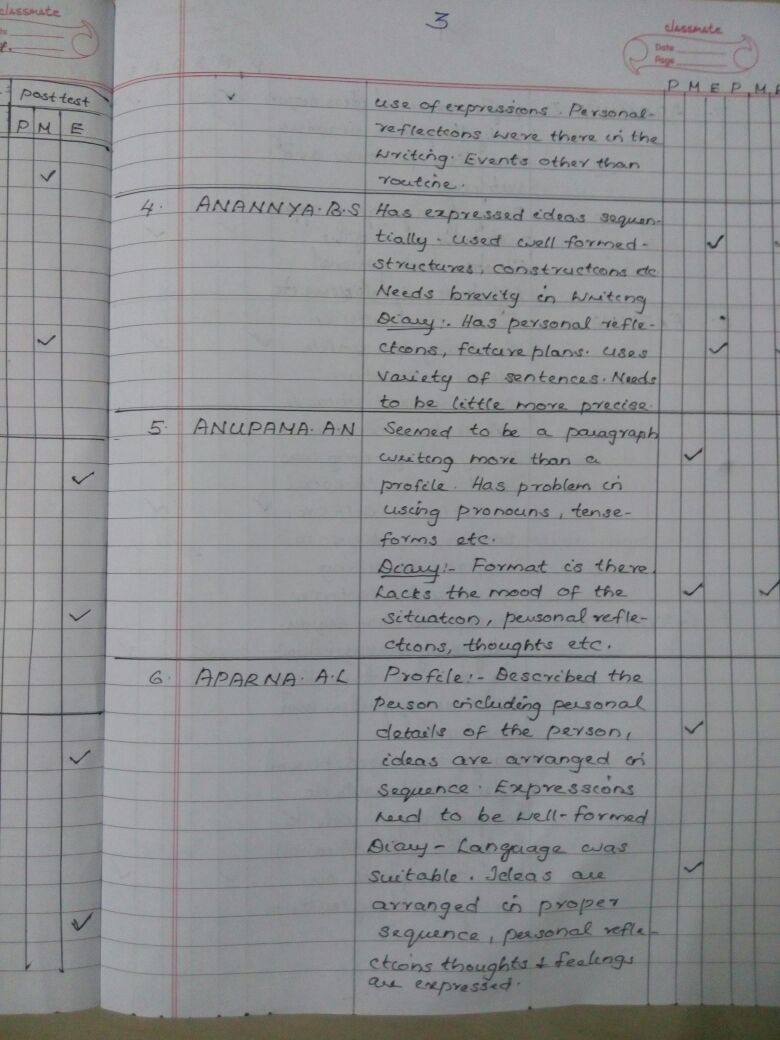 classmate
post test
P M E
3
classmate
Date
Page
P M E P M
use of expressions. Personal-
reflections were there in the
writing. Events other than
routine.
4. ANANNYA.B.S Has expressed ideas sequen-
tially. Used well formed-
structures, constructions etc
Needs brevity in writing
Diary:- Has personal refle-
ctions, future plans. uses
variety of sentences. Needs
to be little more precise.
5. ANUPAMA.A.N Seemed to be a paragraph
writing more than a
profile. Has problem in
using pronouns, tense-
forms etc.
Diary:- Format is there.
Lacks the mood of the
situation, personal refle-
ctions, thoughts etc.
6. APARNA.A.L Profile:- Described the
person including personal
details of the person,
ideas are arranged in
sequence. Expressions
need to be well-formed
Diary - Language was
suitable. Ideas are
arranged in proper
sequence, personal refle-
ctions thoughts & feelings
are expressed.